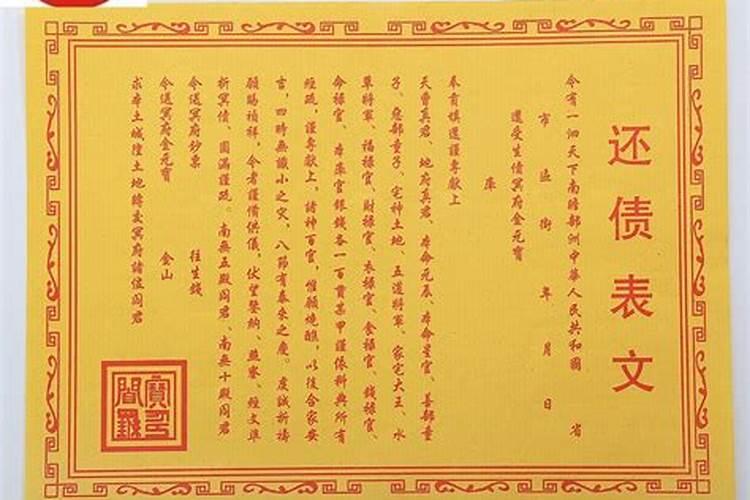 还债表文
今有一泗天下南瞻部洲中華人民共和國 省
市 區 街 年 月 日
還受生債冥府金元寶
庫
奉育填還謹專獻上
天曹真君、地府真君、本命元辰、本命星官、善部童
子、惡部童子、宅神土地、五道將軍、家宅大王、水
草將軍、福祿官、財祿官、衣祿官、食祿官、錢祿官、
命祿官、本庫官銀錢各一百貫某甲謹依科典所有
經疏,謹專獻上,諸神百官,惟願燒醮,以後合家安
吉,四時無讖小之灾,八節有泰來之慶。虔誠祈禱
願賜禎祥,令者謹備供儀,伏望鑒納、燕寥、經文準
折冥債、圓滿謹疏。南無五殿阎君、南無十殿阎君
令送冥府鈔票 往生錢
令送冥府金元寶 金山
求本土城隍土地轉交冥府諸位阎君